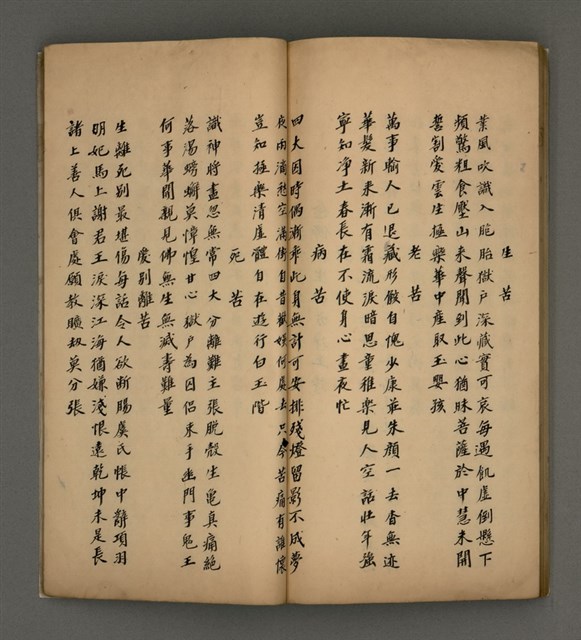 生苦
業風吹識入胞胎獄戶深藏實可哀每遇飢虛倒懸下
頻驚粗食壓山來聲聞到此心猶昧菩薩於中慧未開
誓割愛雲生極樂華中產取玉嬰孩
老苦
萬事輸人已退藏形骸自愧少康莊朱顏一去杳無迹
華髮新來漸有霜流淚暗思童稚樂見人空話壯年強
寧知淨土春長在不使身心晝夜忙
病苦
四大因時偶漸乖此身無計可安排殘燈留影不成夢
夜雨滴愁空滿街自昔歡娛何處去只今苦痛有誰懷
豈知極樂清虛體自在遊行白玉階
死苦
識神將盡忽無常四大分離難主張脫殼生龜真痛絕
落湯螃蠏莫慞惶甘心獄戶為囚侶束手幽門事鬼王
何事華開親見佛無生無滅壽難量
愛別離苦
生離死別最堪傷每話令人欲斷腸虞氏帳中辭項羽
明妃馬上謝君王淚深江海猶嫌淺恨遠乾坤未足長
諸上善人俱會處願教曠劫莫分張